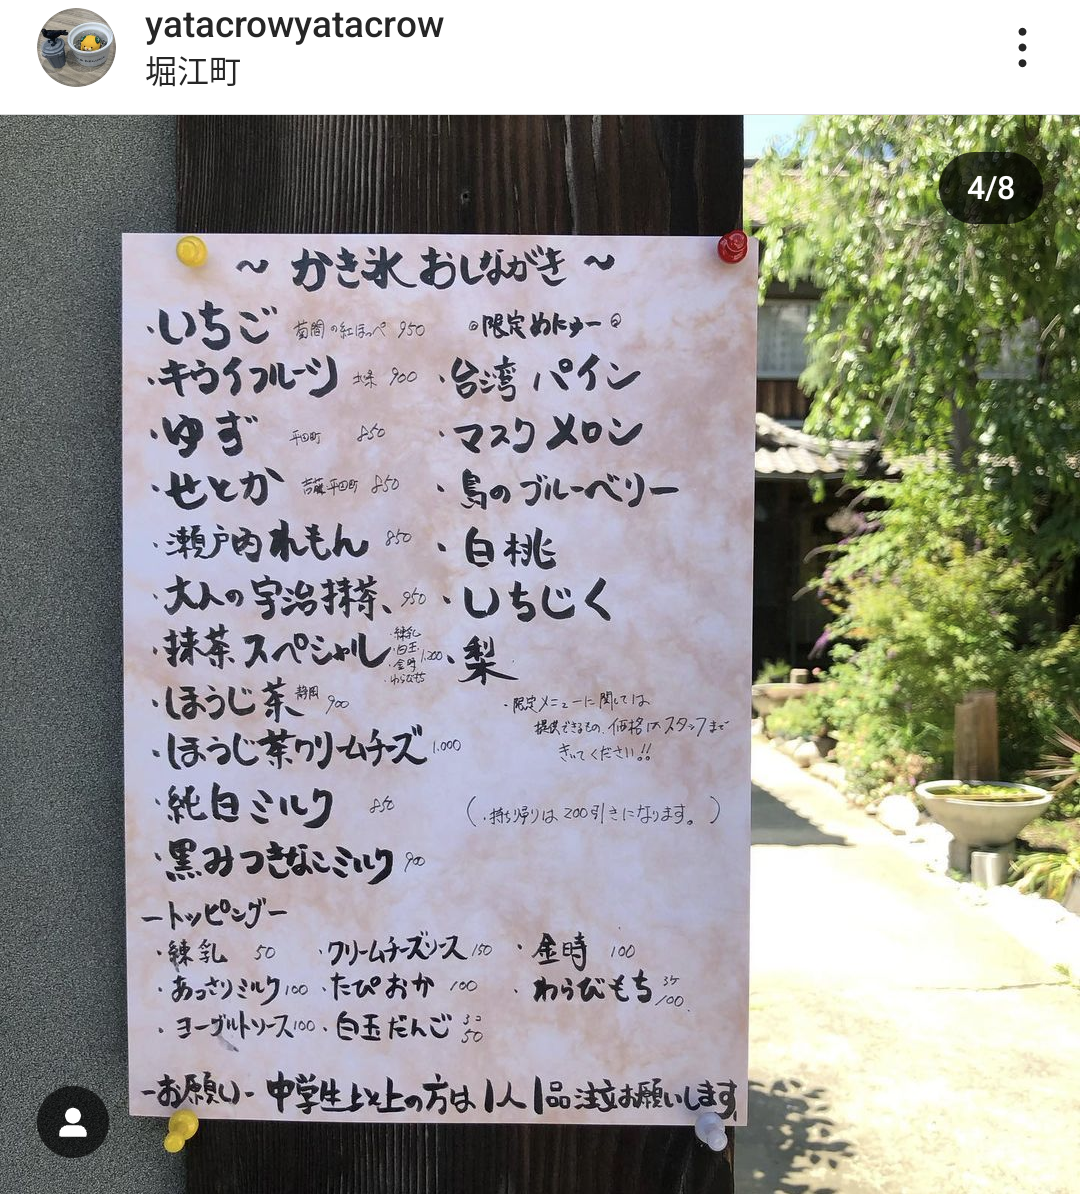 yatacrowyatacrow
堀江町
4/8
～ かき氷 おしながき ～
・いちご 菊間の紅ほっぺ 950
・キウイフルーツ 900
・ゆず 平田町 850
・せとか 吉藤 平田町 850
・瀬戸内れもん 850
・大人の宇治抹茶 950
・抹茶スペシャル ・練乳 ・白玉 ・金時 ・わらびもち 1,200
・ほうじ茶 静岡 900
・ほうじ茶クリームチーズ 1,000
・純白ミルク 850
・黒みつきなこミルク 900
◎限定めにゅー◎
・台湾パイン
・マスクメロン
・島のブルーベリー
・白桃
・いちじく
・梨
・限定メニューに関しては
提供できるもの、価格はスタッフまで
きいてください!!
(・持ち帰りは200引きになります。)
ートッピングー
・練乳 50 ・クリームチーズソース 150 ・金時 100
・あっさりミルク 100 ・たぴおか 100 ・わらびもち 3ケ 100
・ヨーグルトソース 100 ・白玉だんご 3コ 50
-お願い- 中学生以上の方は1人1品注文お願いします